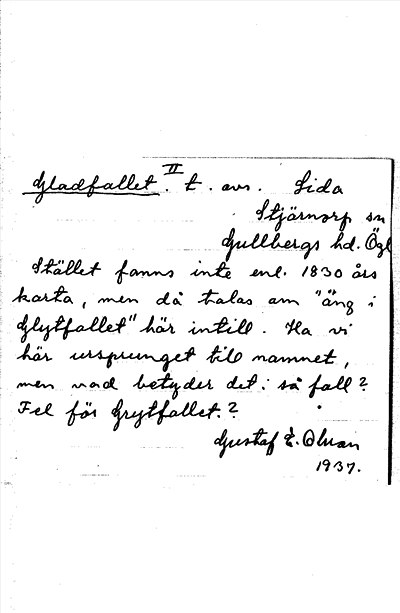 Gladfallet. II t. avs. Sida
Stjärnorp sn
Gullbergs hd. Ögl
Stället fanns inte enl. 1830 års
karta, men då talas om "äng i
Glytfallet" här intill. Ha vi
här ursprunget till namnet,
men vad betyder det i så fall?
Fel för Grytfallet.?
Gustaf E. Olsson
1937.